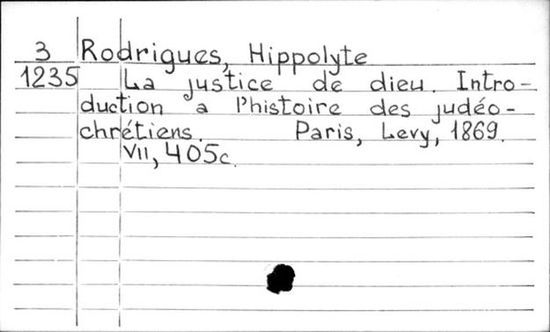 3 Rodrigues, Hippolyte
1235 La justice de dieu. Intro-
duction a l'histoire des judéo-
chrétiens. Paris, Levy, 1869.
VII, 405c.